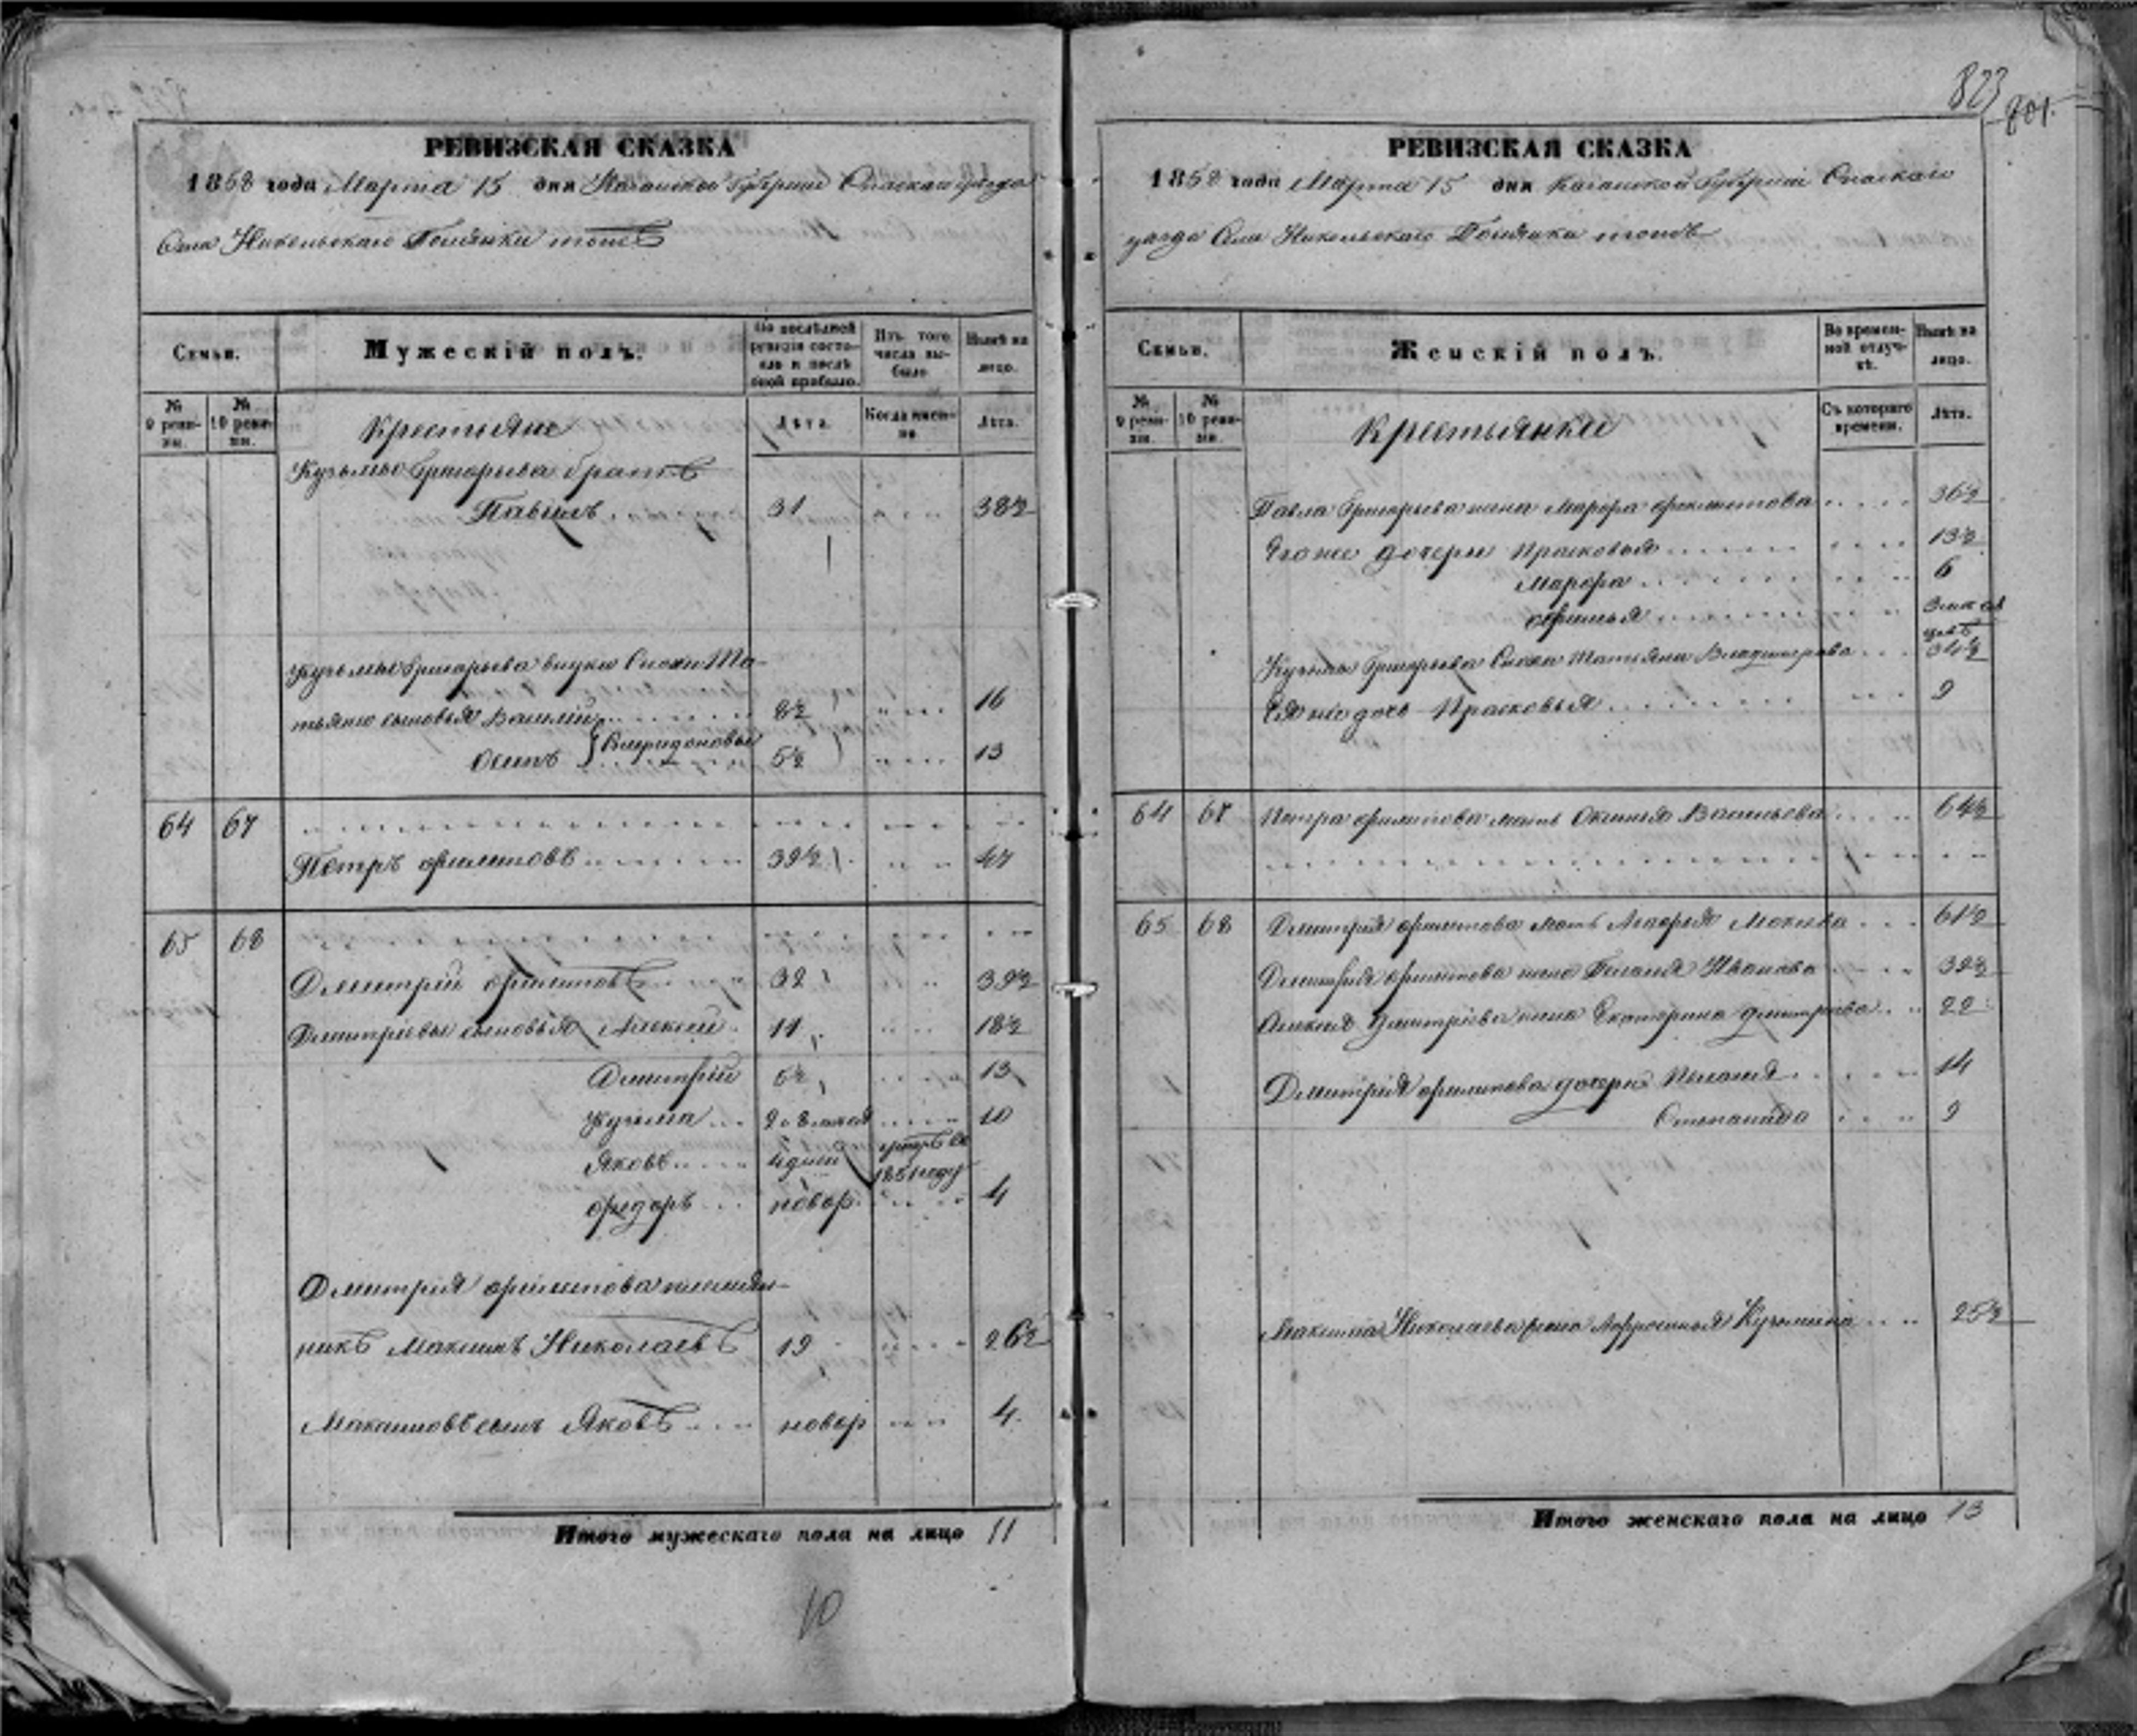 РЕВИЗСКАЯ СКАЗКА
1858 года Марта 15 дня Казанской Губернии Спаскаго уезда
Села Никольскаго тожъ
Семьи.
Мужескій полъ.
По послѣдней ревизіи состояло и послѣ оной прибыло.
Изъ того числа выбыло
Нынѣ на лицо.
№ 9 ревизіи.
№ 10 ревизіи.
Крестьяне
Лѣта.
Когда именно
Лѣта.
Кузьмы Григорьева братъ
Павелъ 31 38½
Кузьмы Григорьева внуки Снохи Та-
тьяны сыновья Василій 8½ 16
Спиридоновы
Осипъ 5½ 13
64 67
Петръ Филиповъ 39½ 47
65 68
Дмитрій Филиповъ 32 39½
Дмитріевы сыновья Алексей 11 18½
Дмитрій 5½ 13
Кузьма 10
Яковъ 4 дней умръ въ 1851 году
Федоръ новор. 4
Дмитрия Филипова племян-
никъ Максимъ Николаевъ 19 26½
Максимовъ сынъ Яковъ новор 4
Итого мужескаго пола на лицо 11
10
823
801.
РЕВИЗСКАЯ СКАЗКА
1858 года Марта 15 дня Казанской Губернии Спаскаго
уезда Села Никольскаго тожъ
Семьи.
Женскій полъ.
Во временной отлучкѣ.
Нынѣ на лицо.
№ 9 ревизіи.
№ 10 ревизіи.
Крестьянки
Съ котораго времени.
Лѣта.
Павла Григорьева жена Марфа 36½
Его же дочери Прасковья 13½
Марфа 6
Афимья
Кузьмы Григорьева Сноха Татьяна Владимирова
Ея же дочь Прасковья 9
64 67 Петра Филипова мать Аксинья Васильева 64½
65 68 Дмитрия Филипова мать 61½
Дмитрия Филипова жена Иванова 39½
Алексея Дмитріева жена Екатерина Дмитріева 22
Дмитрия Филипова дочери Пелагея 14
Степанида 9
Максима Николаева жена Афросинья Кузьмина 25½
Итого женскаго пола на лицо 13